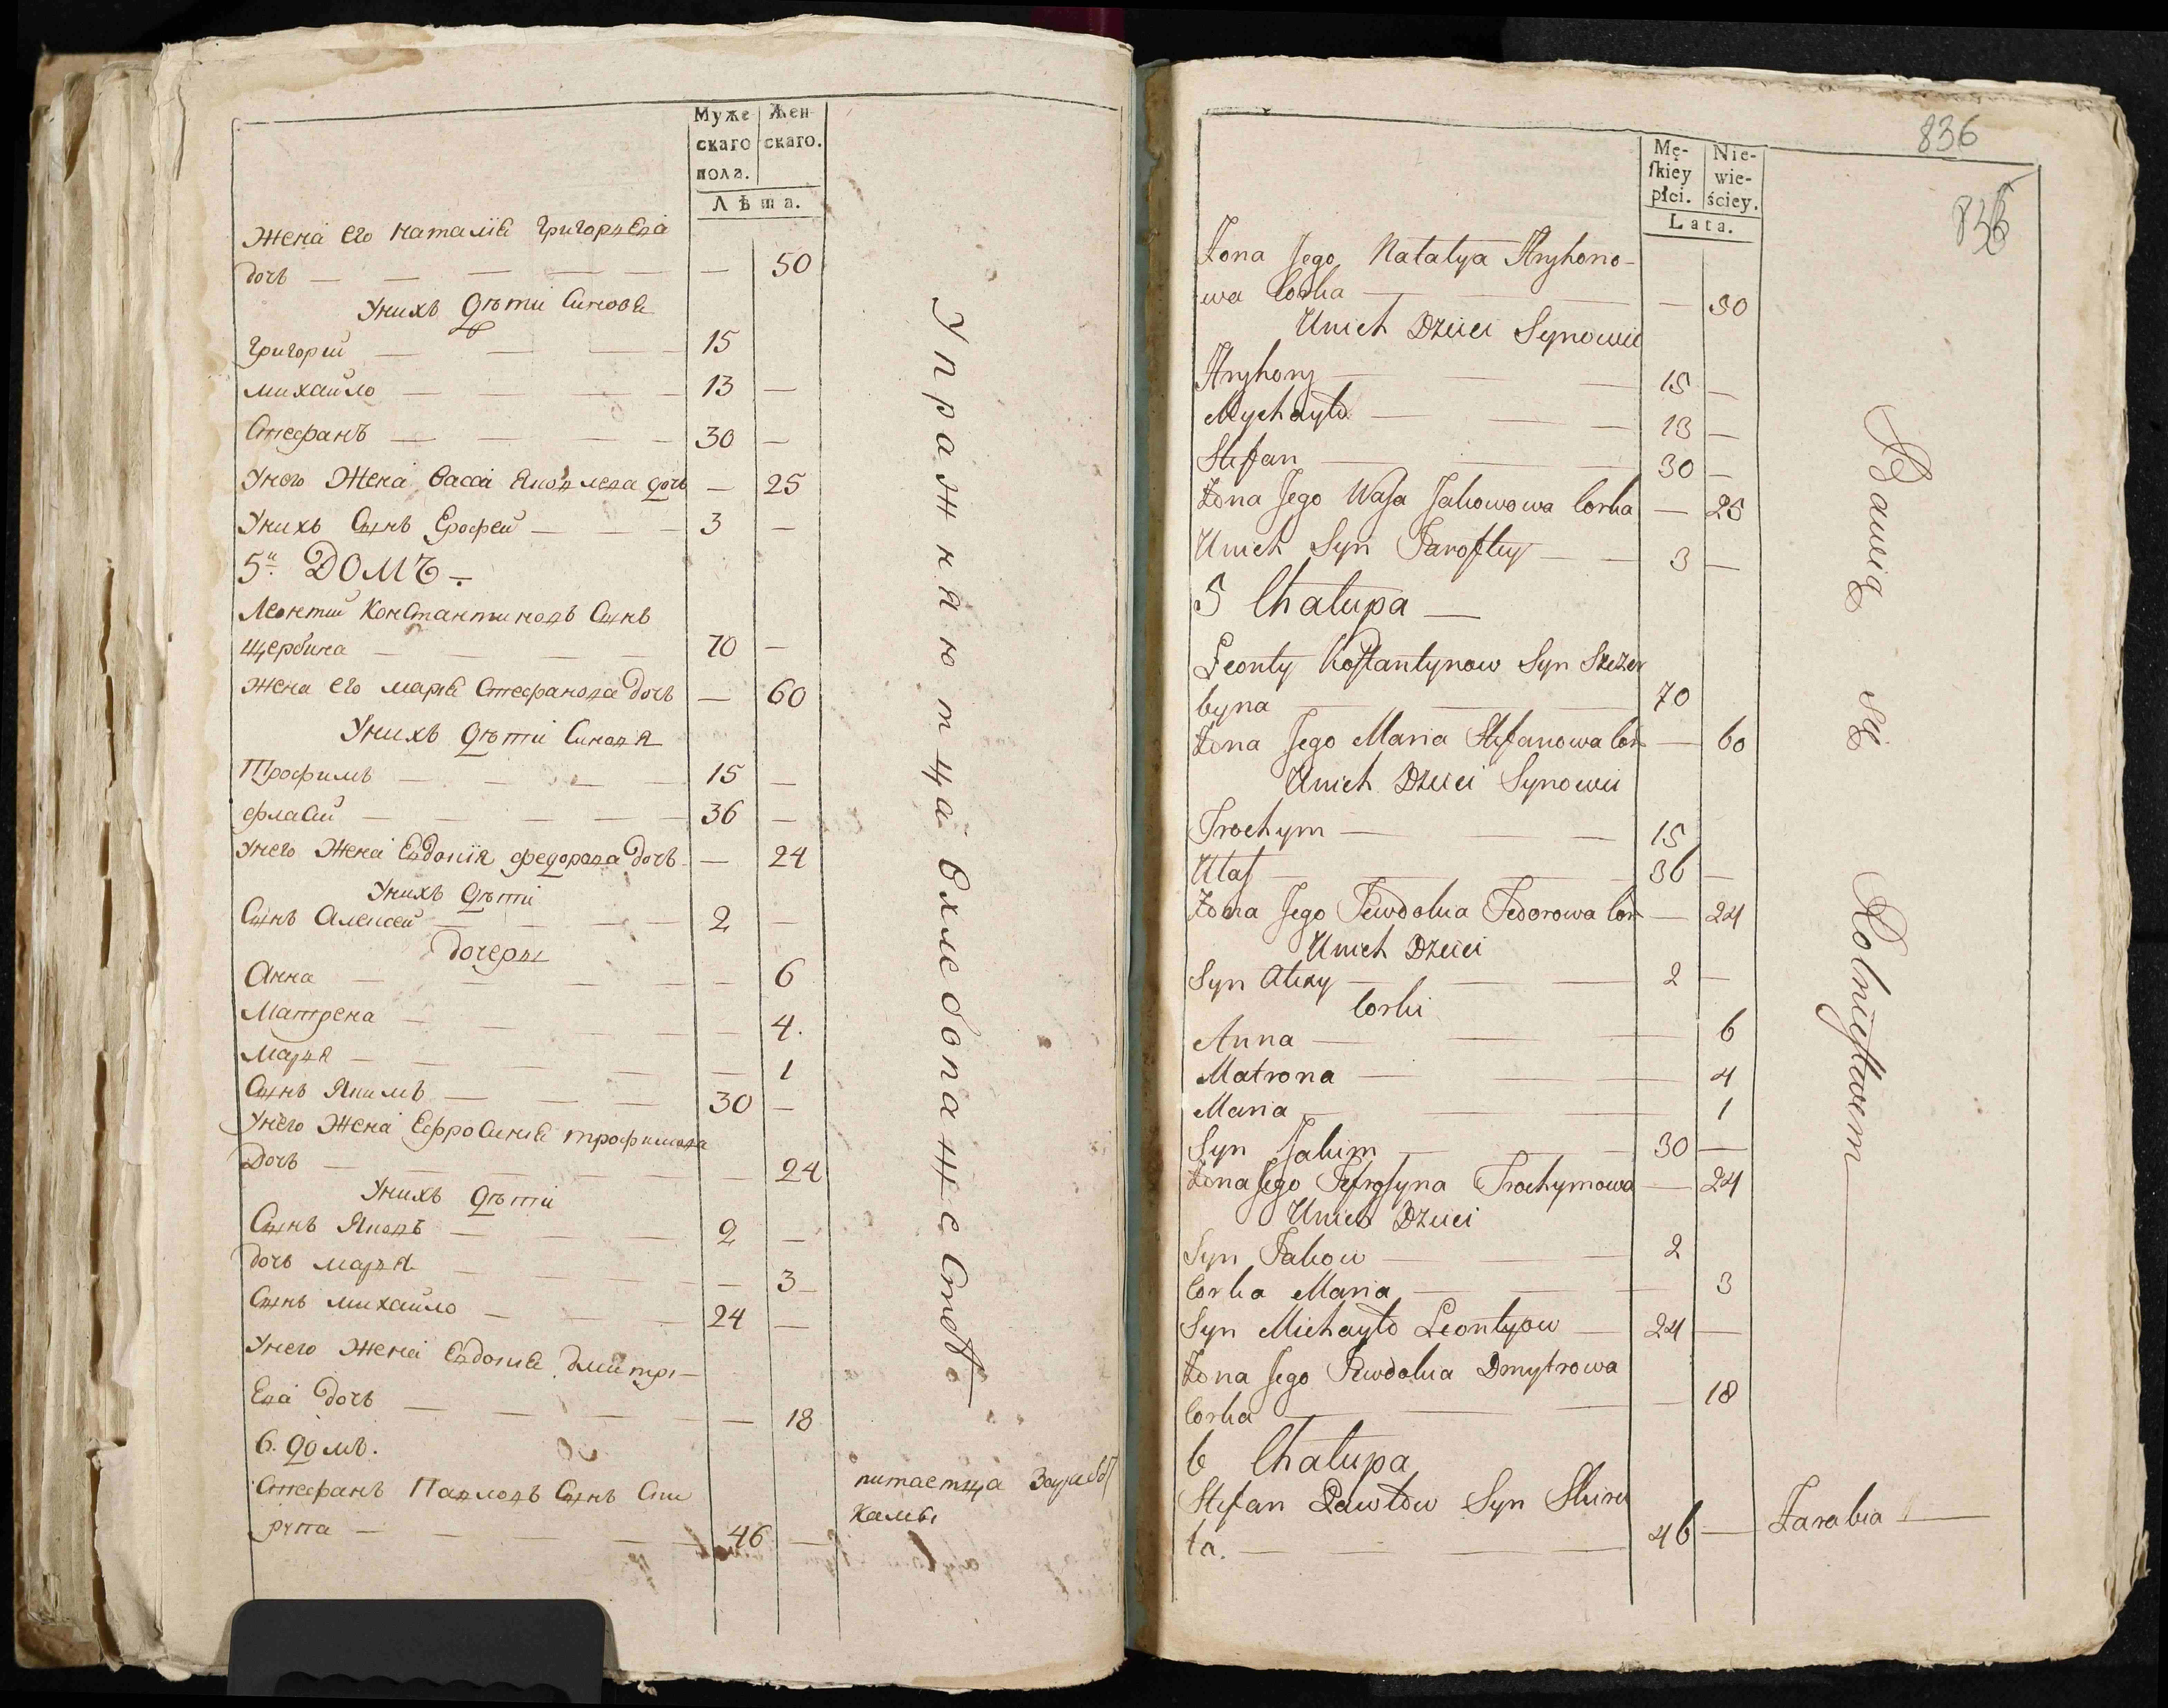 Муже
скаго
пола.
Жен
скаго.
Лѣта.
Жена его наталія григорьева
дочь — — — — — — 50
Унихъ дѣти Синовя
григорий — — — 15
михайло — — — 13 —
Стефанъ — — — 30 —
Унего Жена Васса Яковлева дочь — 25
Унихъ Сынъ Ерофей — — 3 —
5й ДОМЪ —
Леонтий Константиновъ Сынъ
щербина — — — — 70 —
жена его маря Стефанова дочь — 60
Унихъ дѣти Синовя
Трофимъ — — — — 15 —
флаСий — — — — 36 —
Унего Жена Евдокия федорова дочь — 24
Унихъ дѣти
Сынъ Алексей — — — 2 —
дочеры
Анна — — — — — 6
Матрена — — — — — 4.
Маря — — — — — 1
Сынъ Якимъ — — — 30 —
Унего Жена ЕфроСиния трофимова
Дочь — — — — — 24
Унихъ дѣти
Сынъ Яковъ — — — 2 —
дочь маря — — — — 3 —
Сынъ михайло — — — 24 —
Унего Жена Евдокия дмитрі-
Ева дочь — — — — — 18
6. домъ.
Стефанъ Павловъ Сынъ Ски
рута — — — — 46 —
Упражняютца вхлебопажеСтвѣ
питаетца Заработ
Камы
836
836
Mę-
ſkiey
płci.
Nie-
wie-
ściey.
Lata.
Żona Jego Natalya Hryhoro-
wa Corka — — — 50
Unich Dzieci Synowie
Hryhory — — — 15 —
Mychayło — — — 13 —
Stefan — — — 30 —
Żona Jego Waſa Jakowowa Corka — 25
Unich Syn Jaroftey — — 3 —
5 Chałupa —
Leonty Koſtantynow Syn Szczer
byna — — — 70
Żona Jego Maria Stefanowa Cor — 60
Unich Dzieci Synowie
Trochym — — 15
Ułaſ — — — 36 —
Żona Jego Jewdokia Fedorowa Cor — 24
Unich Dzieci
Syn Alexy — — — 2 —
Corki
Anna — — — 6
Matrona — — — 4
Maria — — — 1
Syn Jakim — — 30 —
Żona Jego Jefroſyna Trochymowa — 24
Unich Dzieci
Syn Jakow — — 2
Corka Maria — — — 3
Syn Michayło Leontyow — 24 —
Żona Jego Jewdokia Dmytrowa
Corka — — — — 18
6 Chałupa
Stefan Pawłow Syn Skiru
ta. — — — — 46 —
Bawią się Rolnictwem
Zarabia —